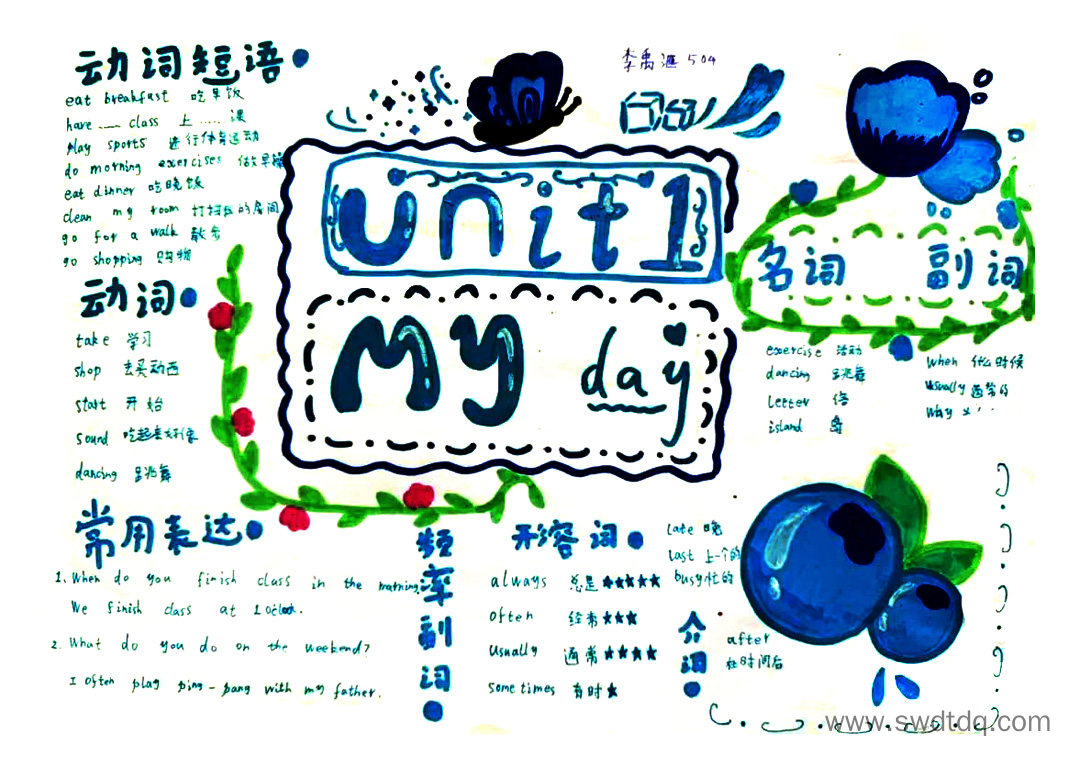 李禹滙 504
动词短语
eat breakfast 吃早饭
have ...... class 上......课
play sports 进行体育运动
do morning exercises 做早操
eat dinner 吃晚饭
clean my room 打扫我的房间
go for a walk 散步
go shopping 购物
unit1
My day
动词
take 学习
shop 去买动西
start 开始
sound 听起来好像
dancing 跳舞
名词 副词
exercise 活动
dancing 跳舞
letter 信
island 岛
when 什么时候
usually 通常的
why
常用表达
1. When do you finish class in the morning
We finish class at 1 o'clock.
2. What do you do on the weekend?
I often play ping-pong with my father.
频率副词
always 总是★★★★★
often 经常★★★
usually 通常★★★★
sometimes 有时★
形容词
late 晚
last 上一个的
busy 忙的
介词
after
在时间后
www.swdtdq.com